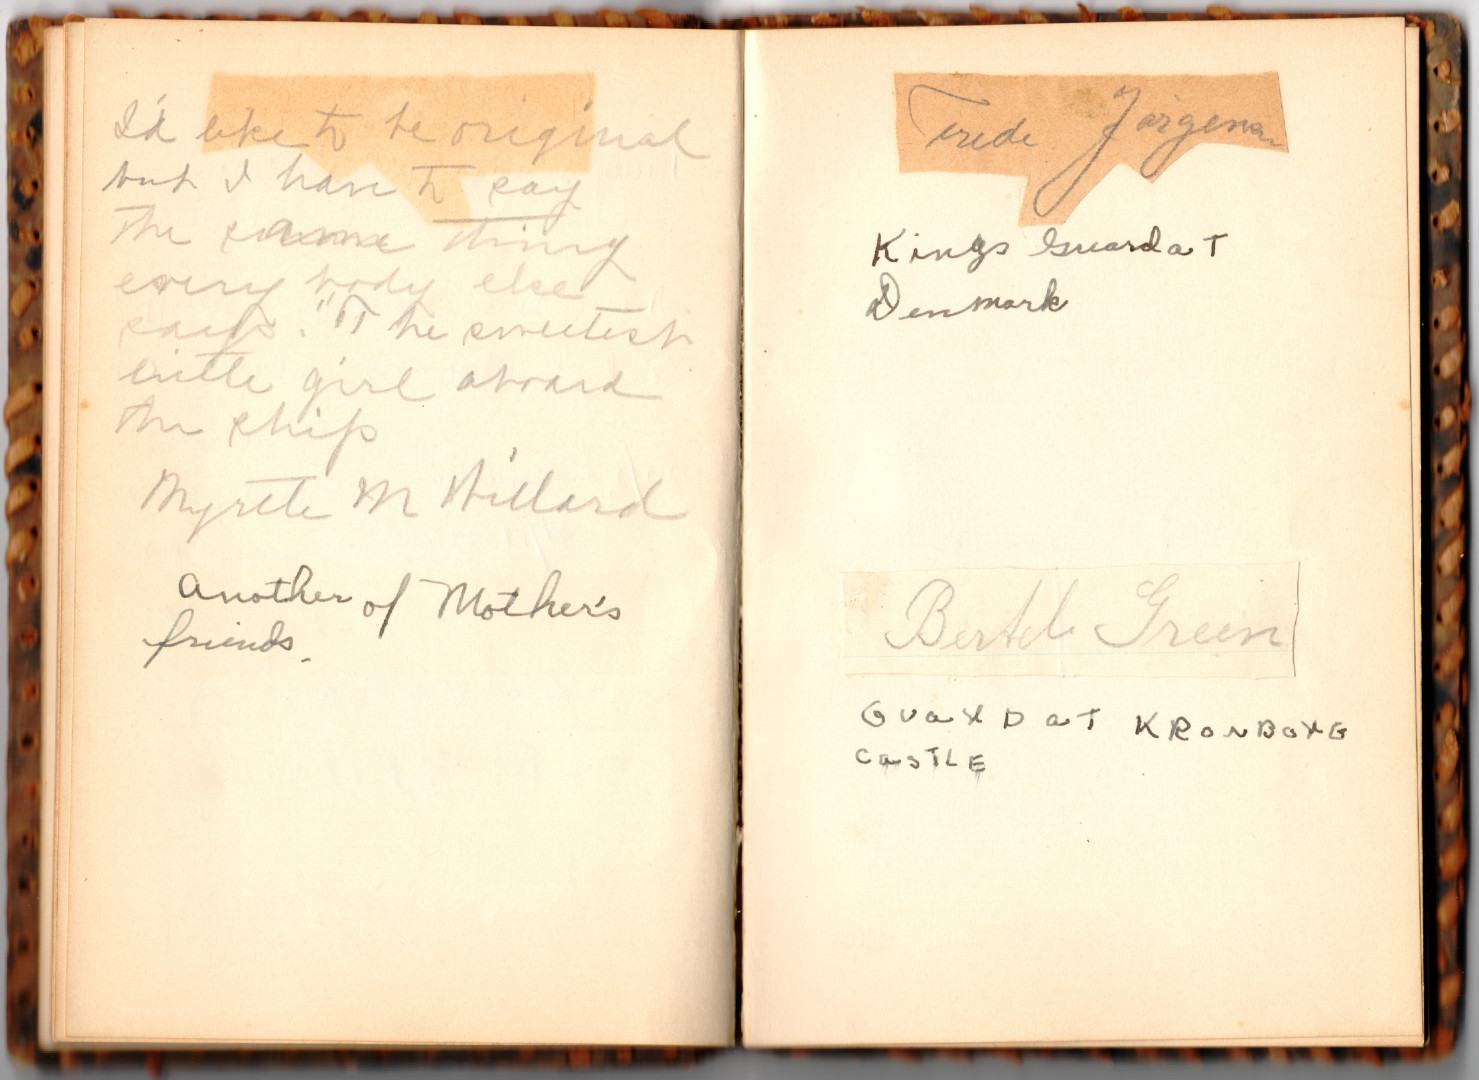 I'd like to be original
but I have to say
the same thing
every body else
says. "The sweetest
little girl aboard
the ship
Myrtle M Hillard
another of Mother's
friends.
Frede Jörgensen
Kings Guard at
Denmark
Bertel Green
GUARD AT KRONBORG
CASTLE